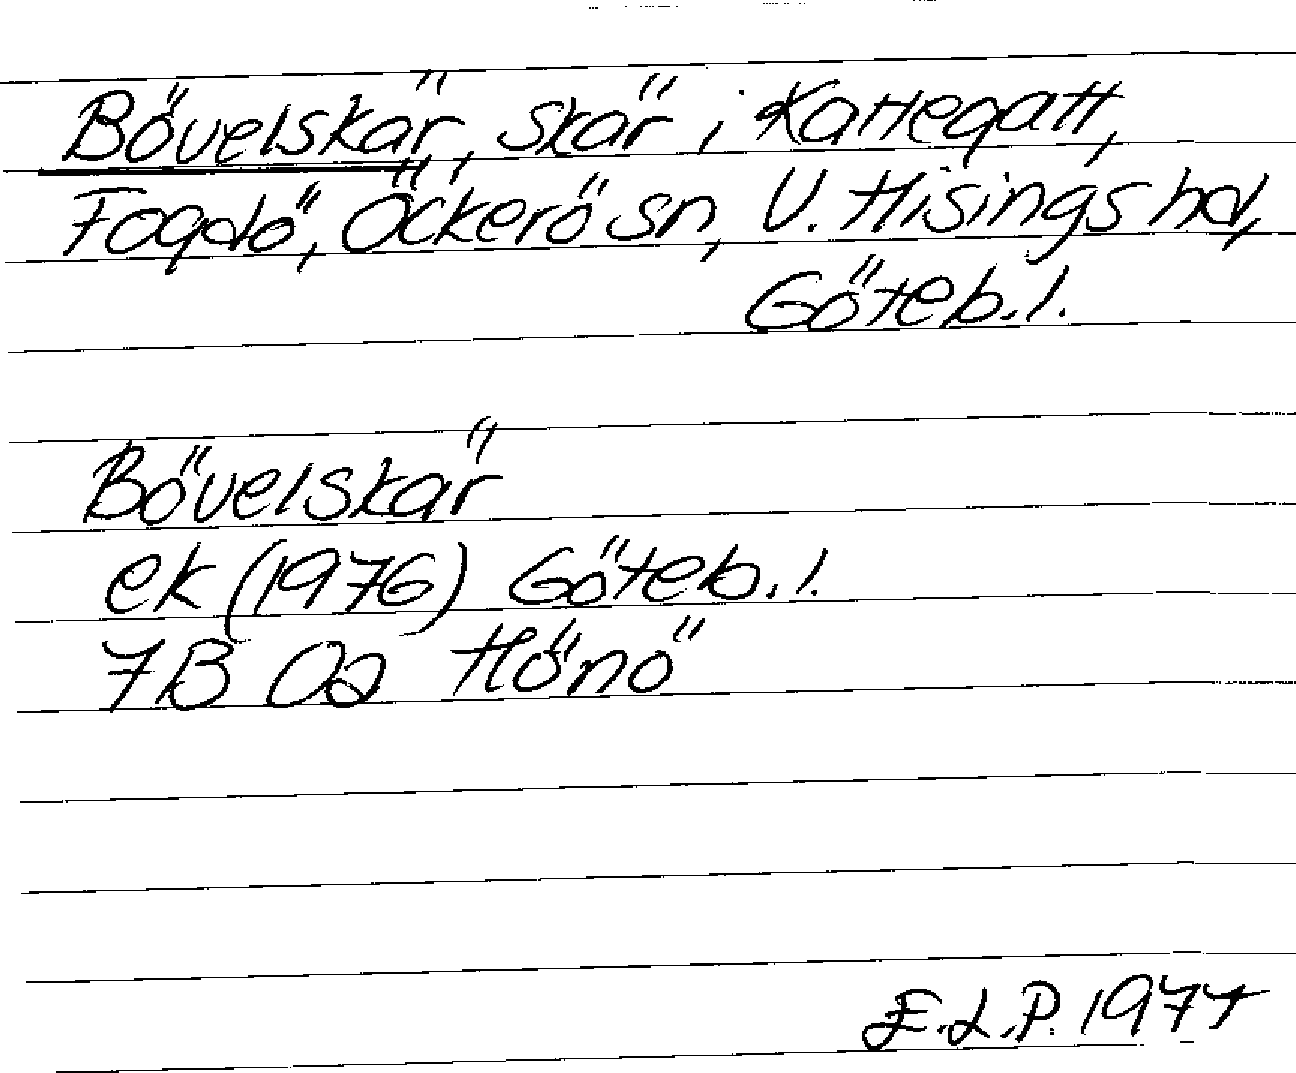 Bövelskär, skär i Kattegatt,
Fogdö, Öckerö sn, V. Hisings hd,
Göteb. l.
Bövelskär
ek (1976) Göteb. l.
7B 0a Hönö
E.L.P. 1977